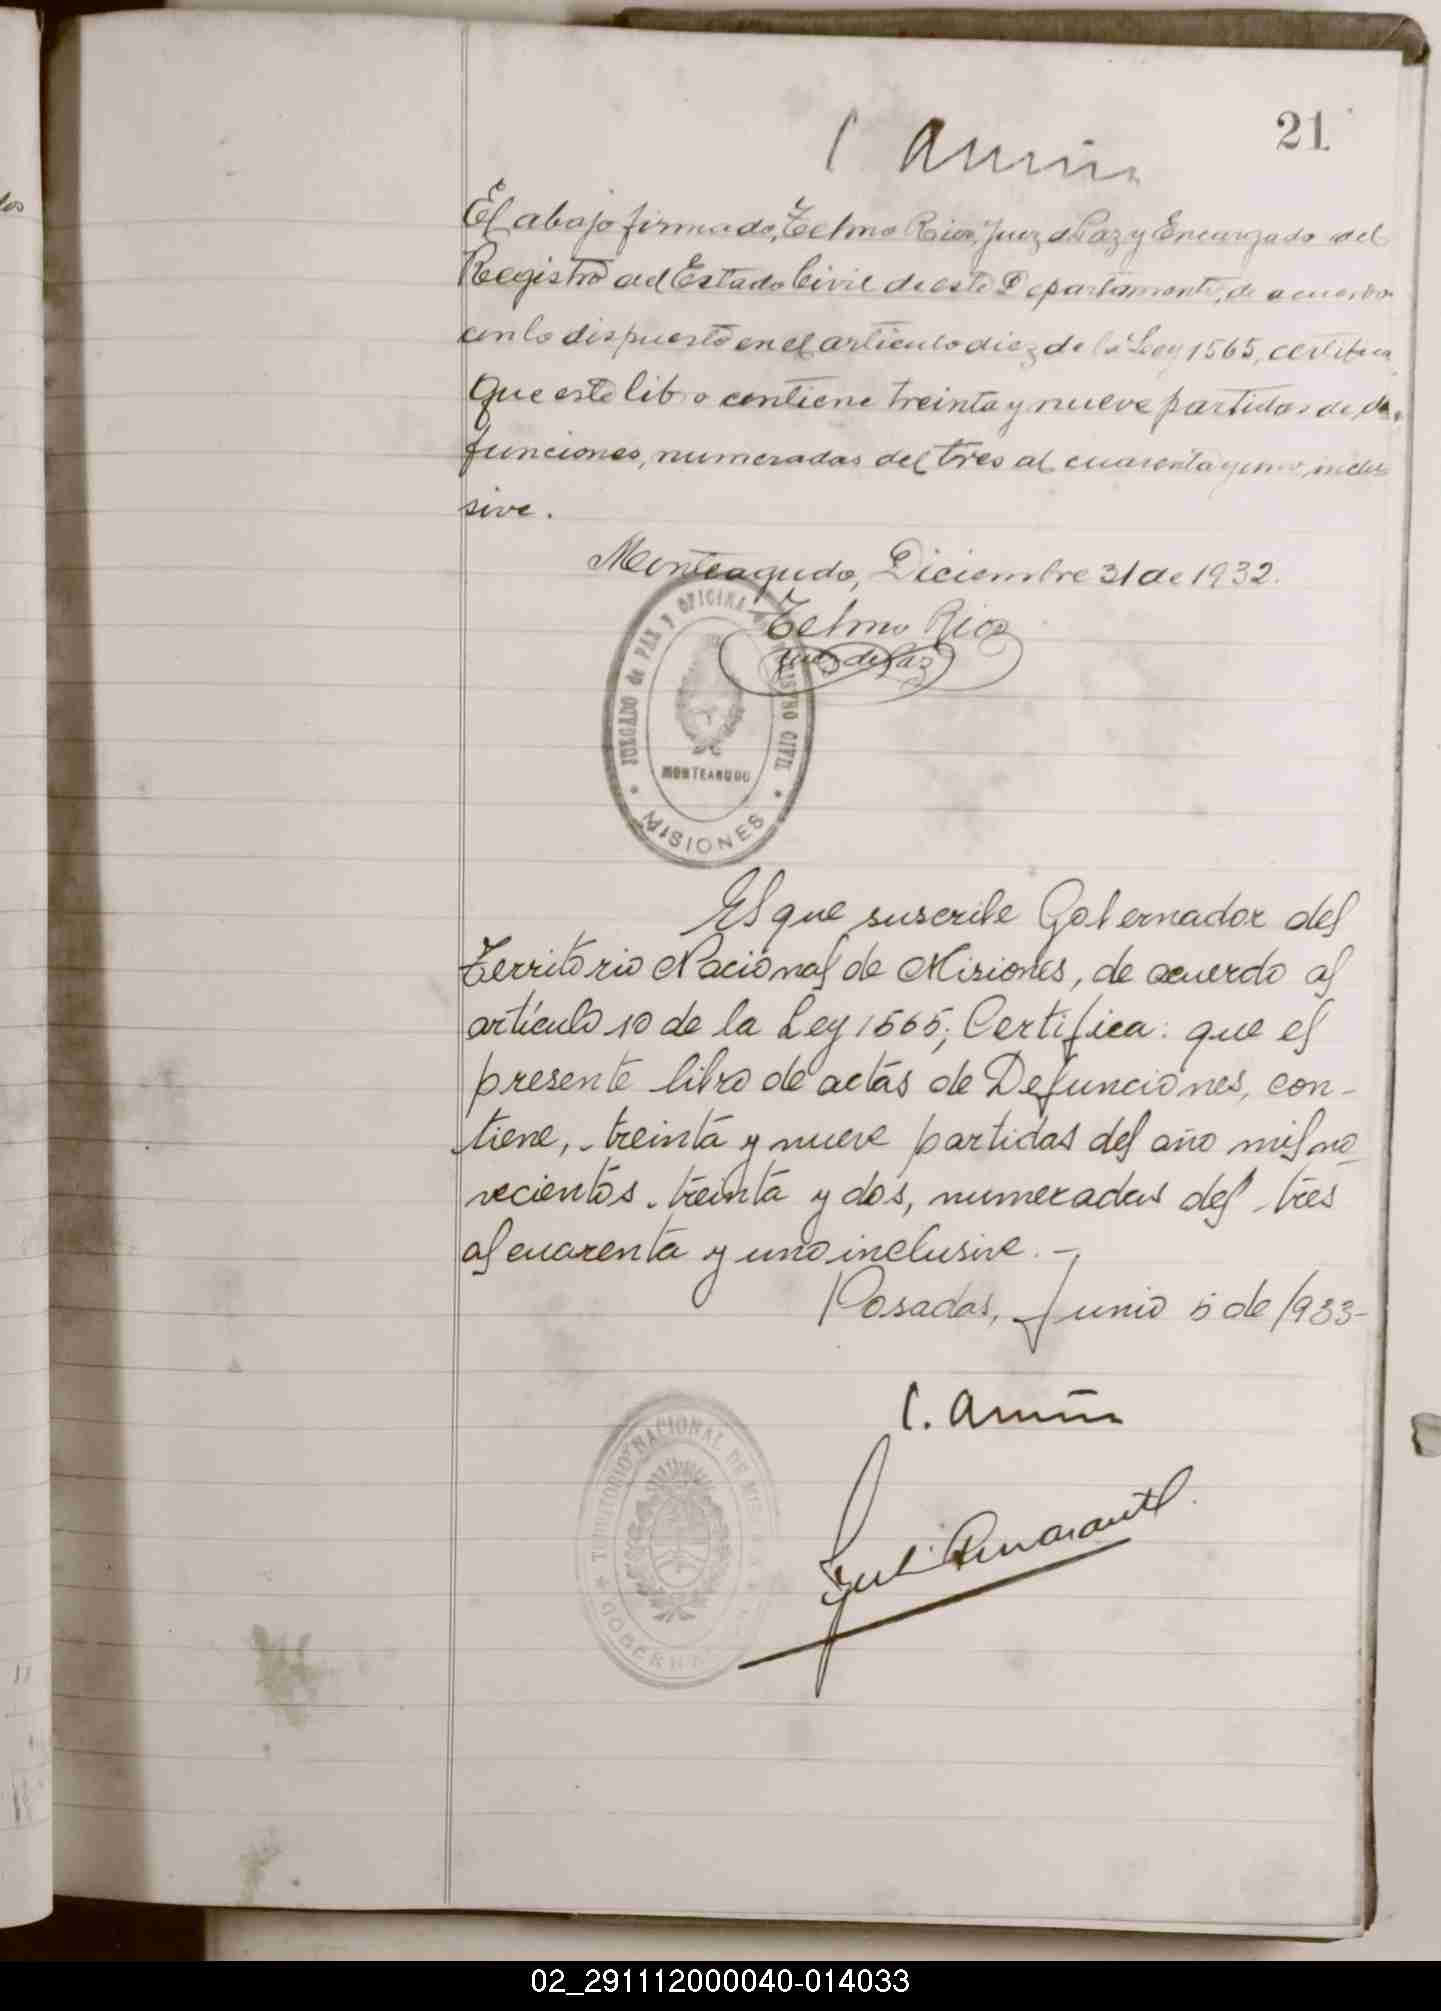 21
El abajo firmado, Telmo Rios, Juez de Paz y Encargado del
Registro del Estado Civil de este Departamento, de acuerdo
con lo dispuesto en el artículo diez de la Ley 1565, certifica
Que este libro contiene treinta y nueve partidas de de-
funciones, numeradas del tres al cuarenta y uno, inclu
sive.
Monteagudo, Diciembre 31 de 1932.
Telmo Rios
Juez de Paz
JUZGADO de PAZ y OFICINA REGISTRO CIVIL
MONTEAGUDO
MISIONES
El que suscribe Gobernador del
Territorio Nacional de Misiones, de acuerdo al
artículo 10 de la Ley 1565, Certifica: que el
presente libro de actas de Defunciones, con-
tiene, treinta y nueve partidas del año mil no-
vecientos treinta y dos, numeradas del tres
al cuarenta y uno inclusive.-
Posadas, Junio 5 de 1933-
TERRITORIO NACIONAL DE MISIONES
GOBERNACION
02_291112000040-014033